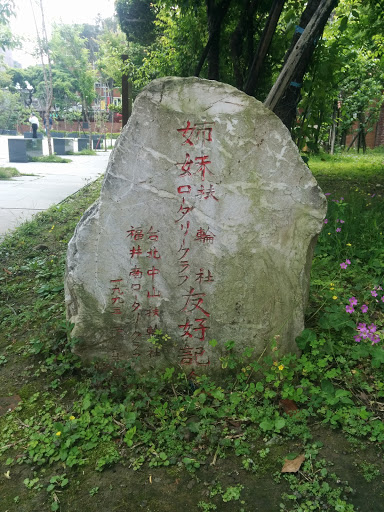 姉妹扶輪社
姉妹ロタリークラブ
友好記
台北中山扶輪社
福井南ロータリー
一九九